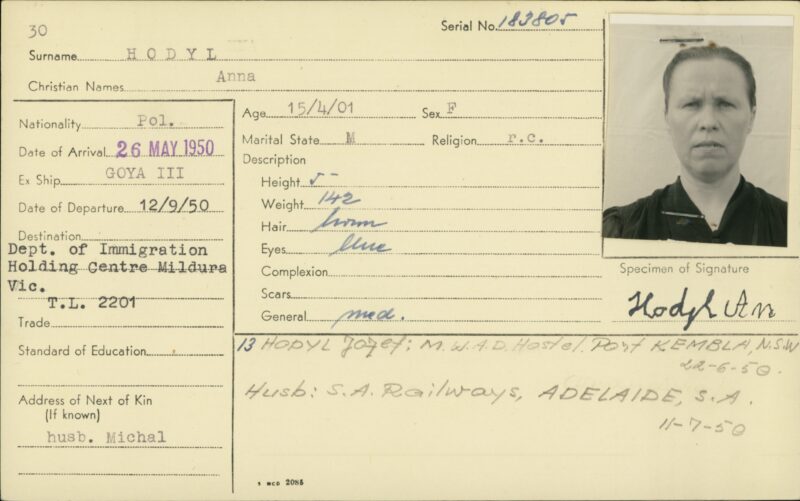 30
Serial No. 183805
Surname HODYL
Christian Names Anna
Nationality Pol.
Date of Arrival 26 MAY 1950
Ex Ship GOYA III
Date of Departure 12/9/50
Destination
Dept. of Immigration
Holding Centre Mildura
Vic.
T.L. 2201
Trade
Standard of Education
Address of Next of Kin
(If known)
husb. Michal
Age 15/4/01 Sex F
Marital State M Religion r.c.
Description
Height 5-
Weight 142
Hair brown
Eyes blue
Complexion
Scars
General med.
Specimen of Signature
Hodyl An
13 HODYL Jozef: M.W.A.D. Hostel. Port KEMBLA, N.S.W
22-6-50.
Husb: S.A. Railways, ADELAIDE, S.A.
11-7-50
5 MCD 2085